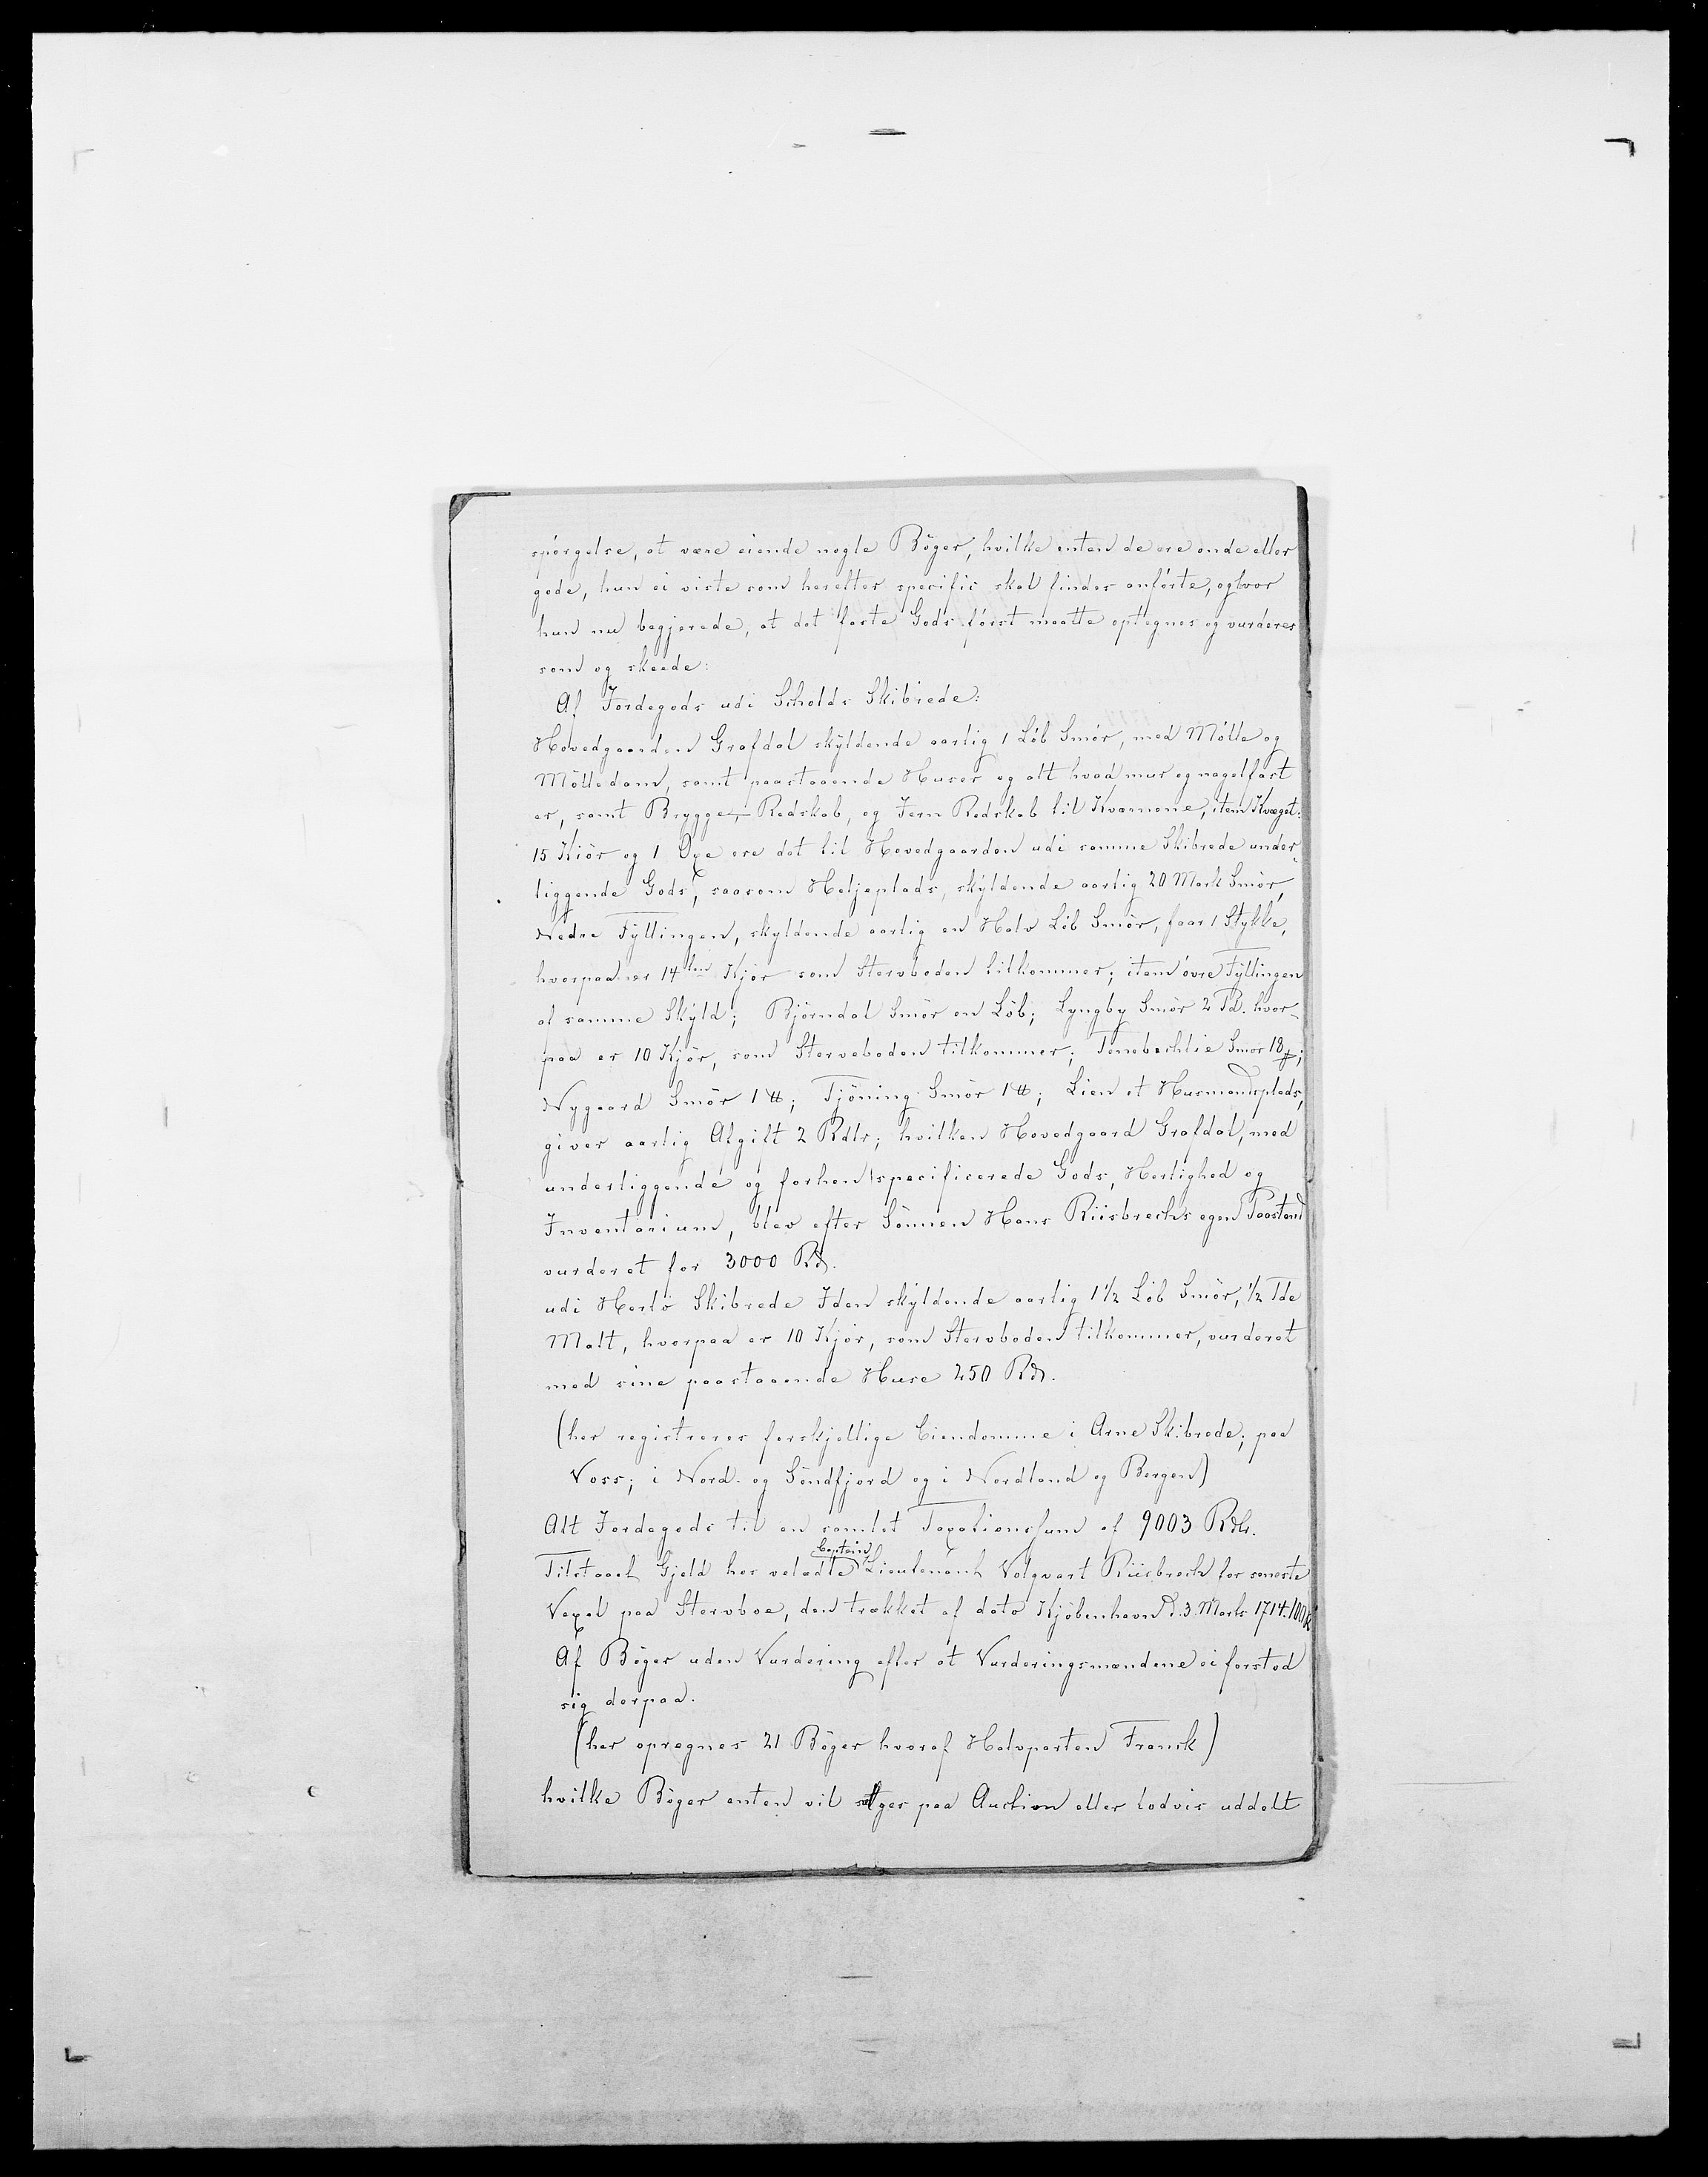 spörgelse, at være eiende nogle Böger, hvilke enten de ere onde eller
gode, hun ei viste som herefter specific skal findes anförte, og hvor
hun nu begjerede, at det faste Gods först maatte optegnes og vurderes
som og skeede:
Af Jordegods udi Scholds Skibrede:
Hovedgaarden Grafdal skyldende aarlig 1 Löb Smör, med Mölle og
Mölledam, samt paastaaende Huser og alt hvad mur og nagelfast
er, samt Brygge-Redskab, og Jern Redskab til Kvarnene, item Kvæget:
15 Kiör og 1 Oxe ere det til Hovedgaarden udi samme Skibrede under-
liggende Gods, saasom Heljeplads, skyldende aarlig 20 Mark Smör,
Nedre Fyllingen, skyldende aarlig en Halv Löb Smör, faar 1 Stykke,
hvorpaa er 14 ten Kjör som Stervboden tilkommer; item övre Fyllingen
af samme Skyld; Björndal Smör en Löb; Lyngby Smör 2 Pd. hvor-
paa er 10 Kjör, som Sterveboden tilkommer; Tenebechlie Smör 18 ;
Nygaard Smör 1 ℔; Tjöning Smör 1 ℔; Lien et Husmandsplads,
giver aarlig Afgift 2 Rdlr; hvilken Hovedgaard Grafdal, med
underliggende og forhen specificerede Gods, Herlighed og
Inventarium, blev efter Sönnen Hans Riisbrechs egen Paastand
vurderet for 3000 Rd.
udi Herlö Skibrede Iden skyldende aarlig 1 1/2 Löb Smör, 1/2 Tde
Malt, hvorpaa er 10 Kjör, som Stervboden tilkommer, vurderet
med sine paastaaende Huse 250 Rd.
(her registreres forskjellige Eiendomme i Arne Skibrede; paa
Voss; i Nord- og Söndfjord og i Nordland og Bergen)
Alt Jordegods til en samlet Taxationssum af 9003 Rdlr.
Captain
Tilstaael Gjeld hos veladle Lieutenant Volqvart Riisbrech for seneste
Vexel paa Stervboe, den trækket af dato Kjöbenhavn d. 3 Marts 1714. 100
Af Böger uden Vurdering efter at Vurderingsmændene ei forstod
sig derpaa.
(her opregnes 21 Böger hvoraf Halvparten Fransk)
hvilke Böger enten vil sælges paa Auction eller lodvis uddelt